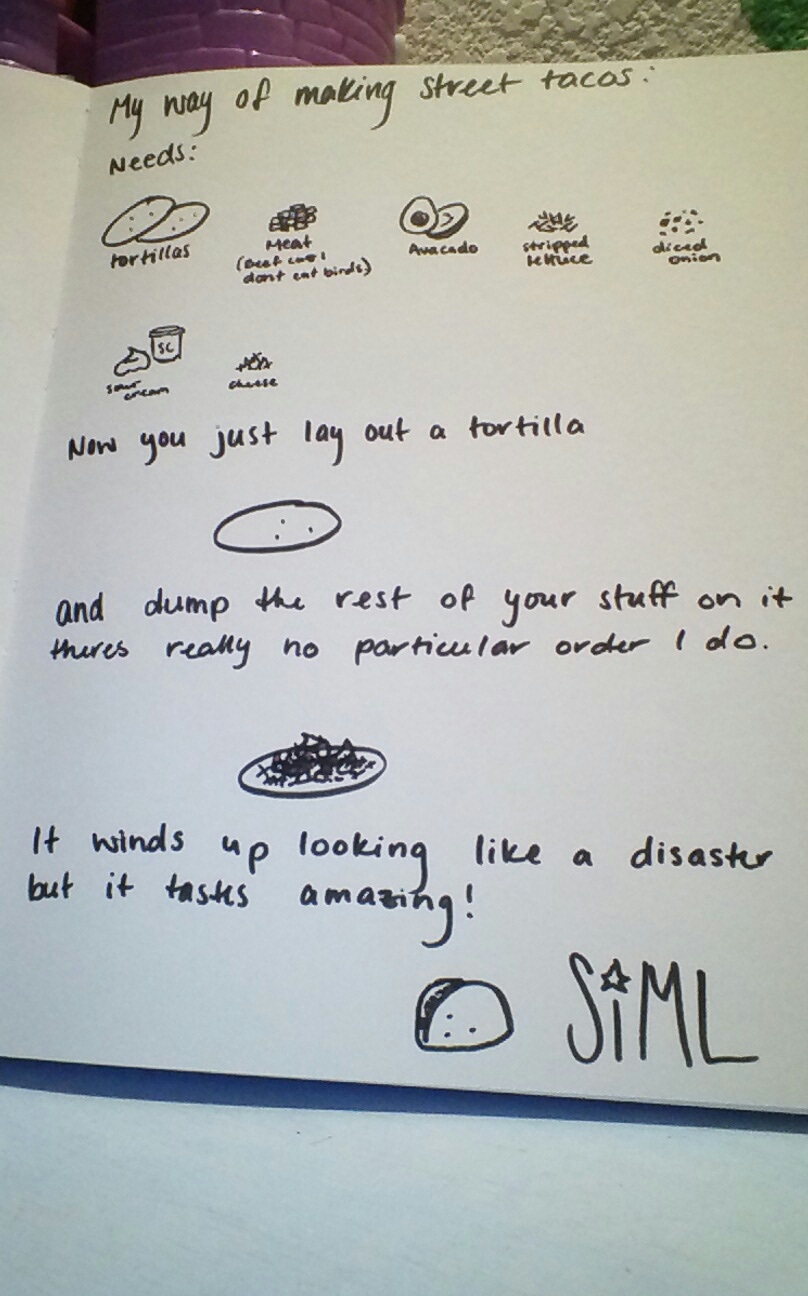 My way of making street tacos:
Needs:
tortillas
Meat
(Beef cus I
dont eat birds)
Avacado
stripped
lettuce
diced
onion
SC
sour
cream
cheese
Now you just lay out a tortilla
and dump the rest of your stuff on it
theres really no particular order I do.
It winds up looking like a disaster
but it tastes amazing!
SiML